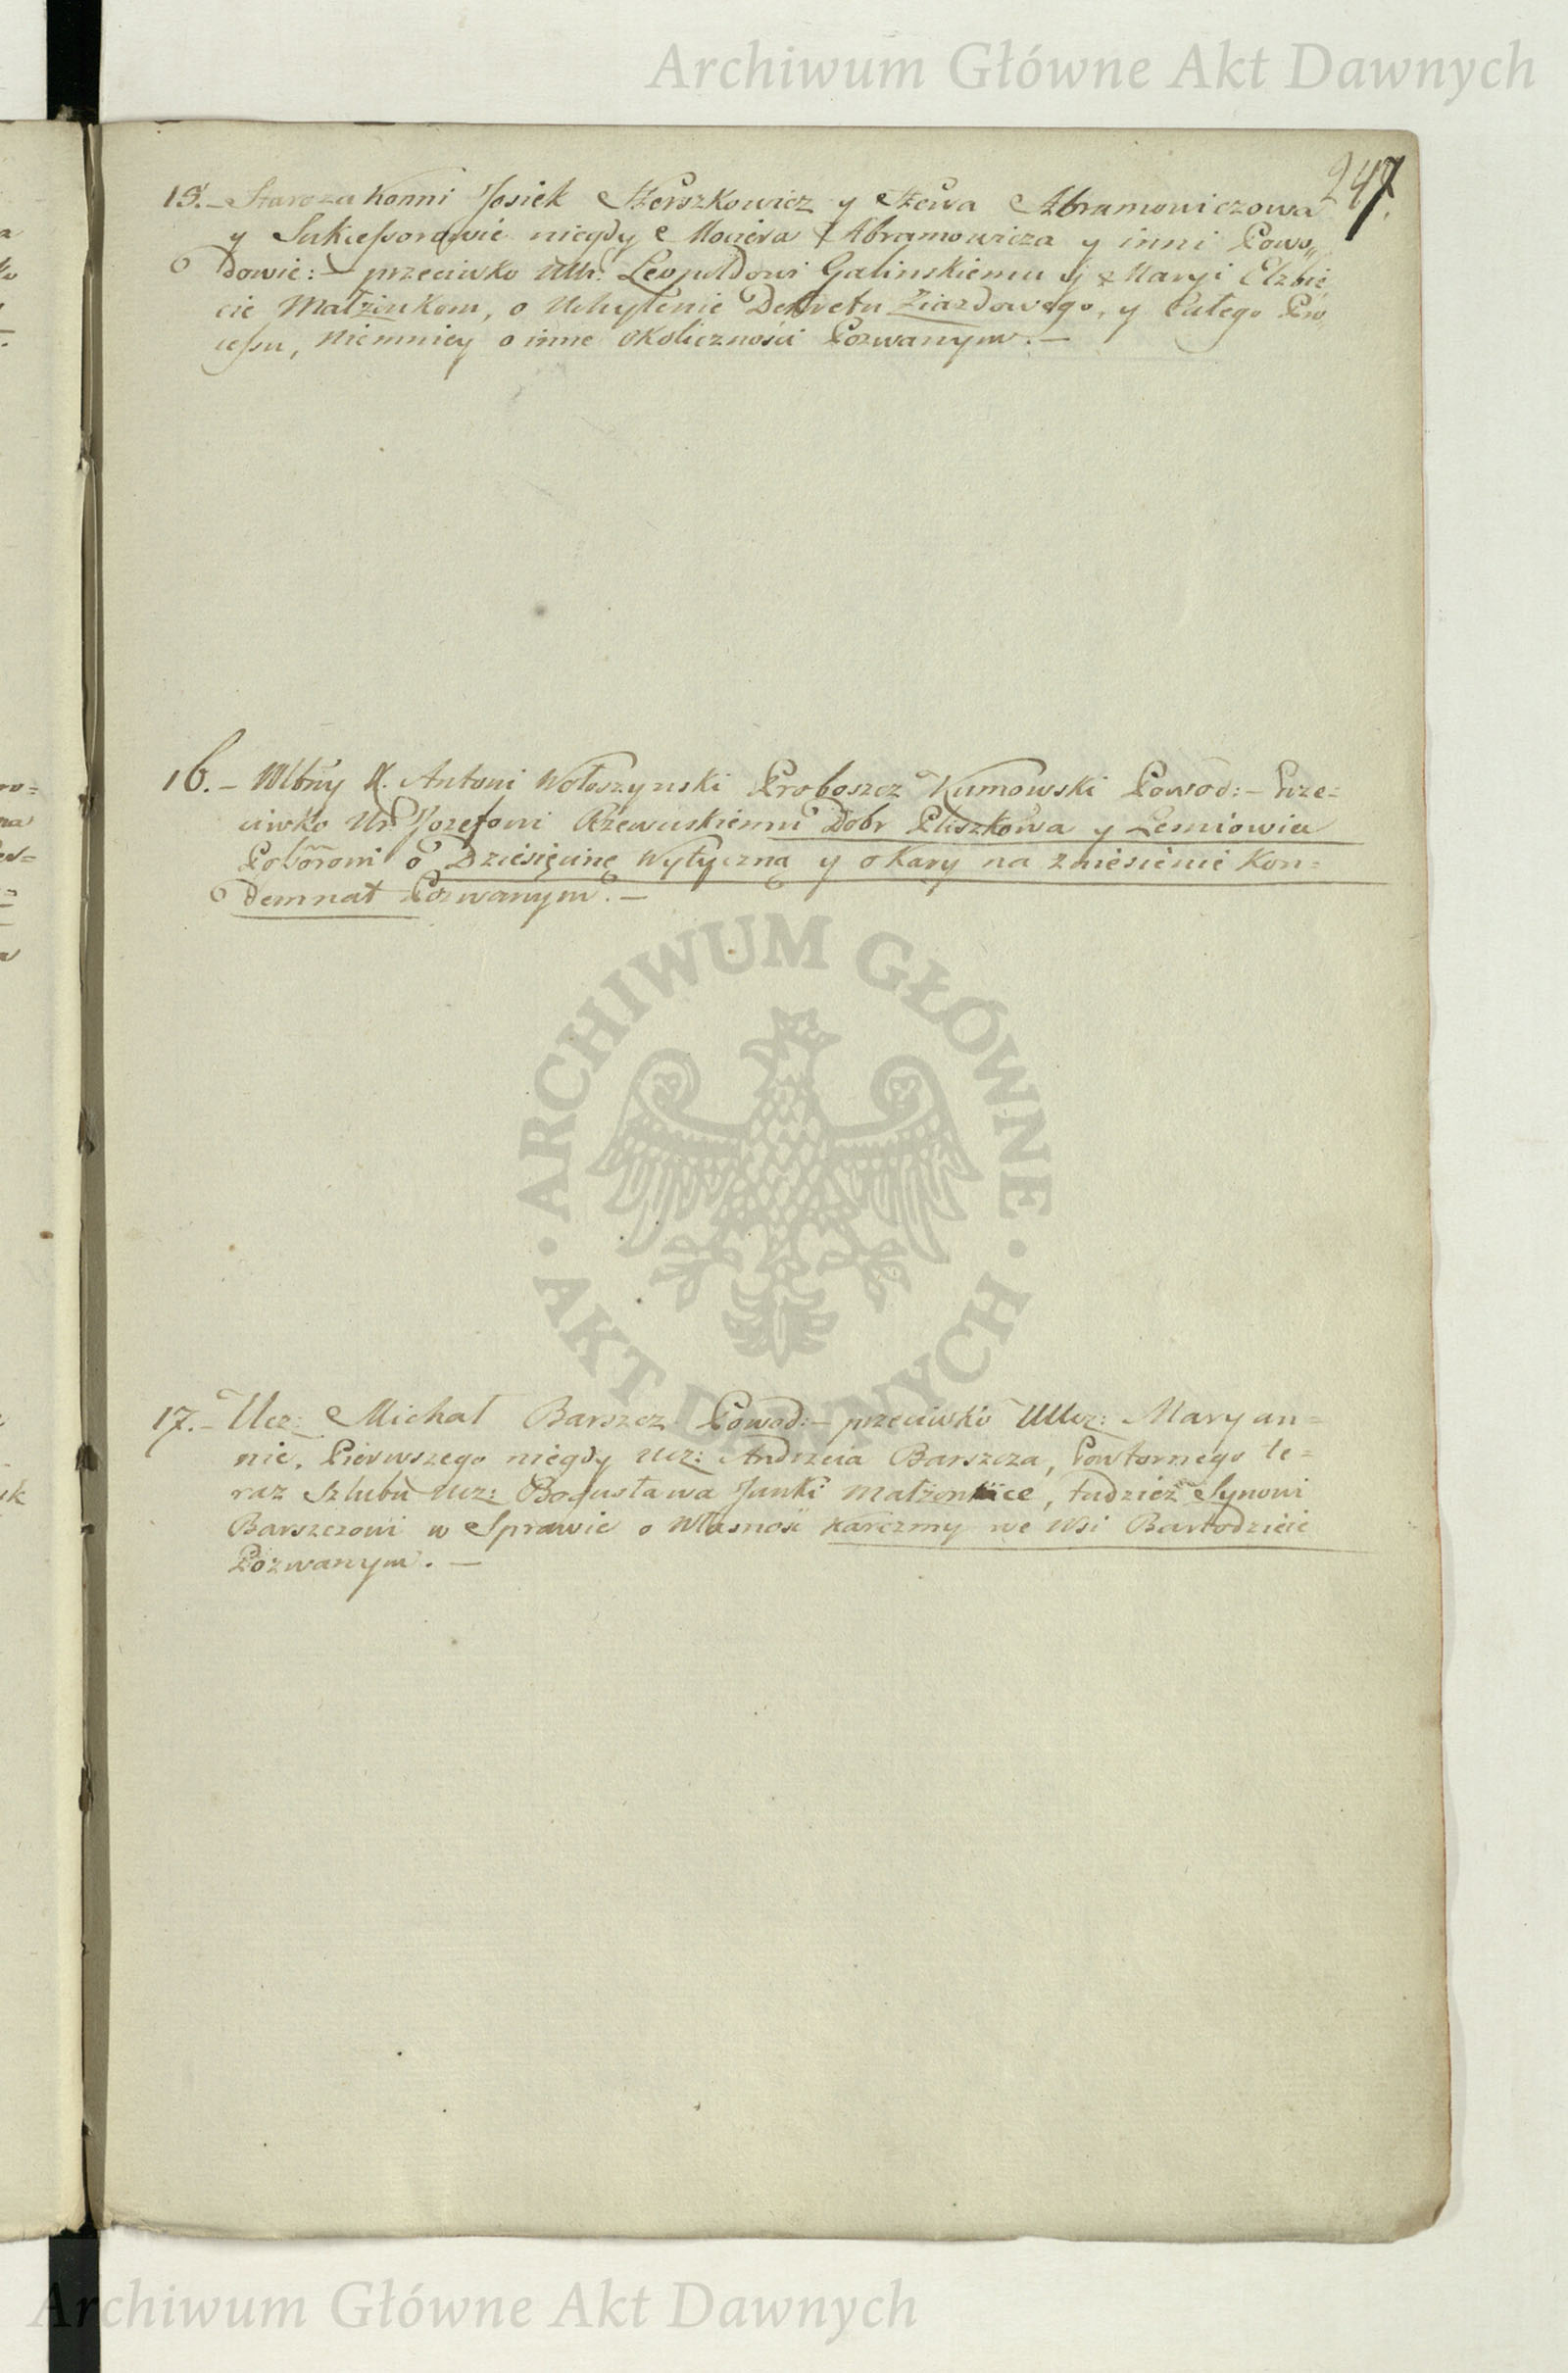 Archiwum Główne Akt Dawnych
247.
15. – Starozakonni Josiek Herszkowicz y Hewa Abramowiczowa
y Sukcessorowie niegdy Abramowicza y inni Powo„
dowie: – przeciwko UUr: Leopoldowi Galinskiemu y Maryi Elzbie„
cie Małżonkom, o Uchylenie Dekretu Ziazdowego, y Całego Pro„
cessu, niemniey o inne okoliczności Pozwanym. –
16. – Wlbny X. Antoni Wołoszynski Proboszcz Kumowski Powod: – Prze=
ciwko Ur Jozefowi Rzewuskiemu Dobr Pliszkowa y
o Dziesięcinę Wytyczną y o Kary na zniesienie Kon=
demnat Pozwanym. –
17. – Ucz: Michał Barszcz Powod: – przeciwko UUcz: Maryan=
nie, Pierwszego niegdy Ucz: Andrzeia Barszcza, Powtornego te=
raz Szlubu Ucz: Bogusława Junki małżonkice, tudzież Synowi
Barszczowi w Sprawie o Własność Karczmy we Wsi Bartodzieie
Pozwanym. –
ARCHIWUM GŁÓWNE · AKT DAWNYCH ·
Archiwum Główne Akt Dawnych